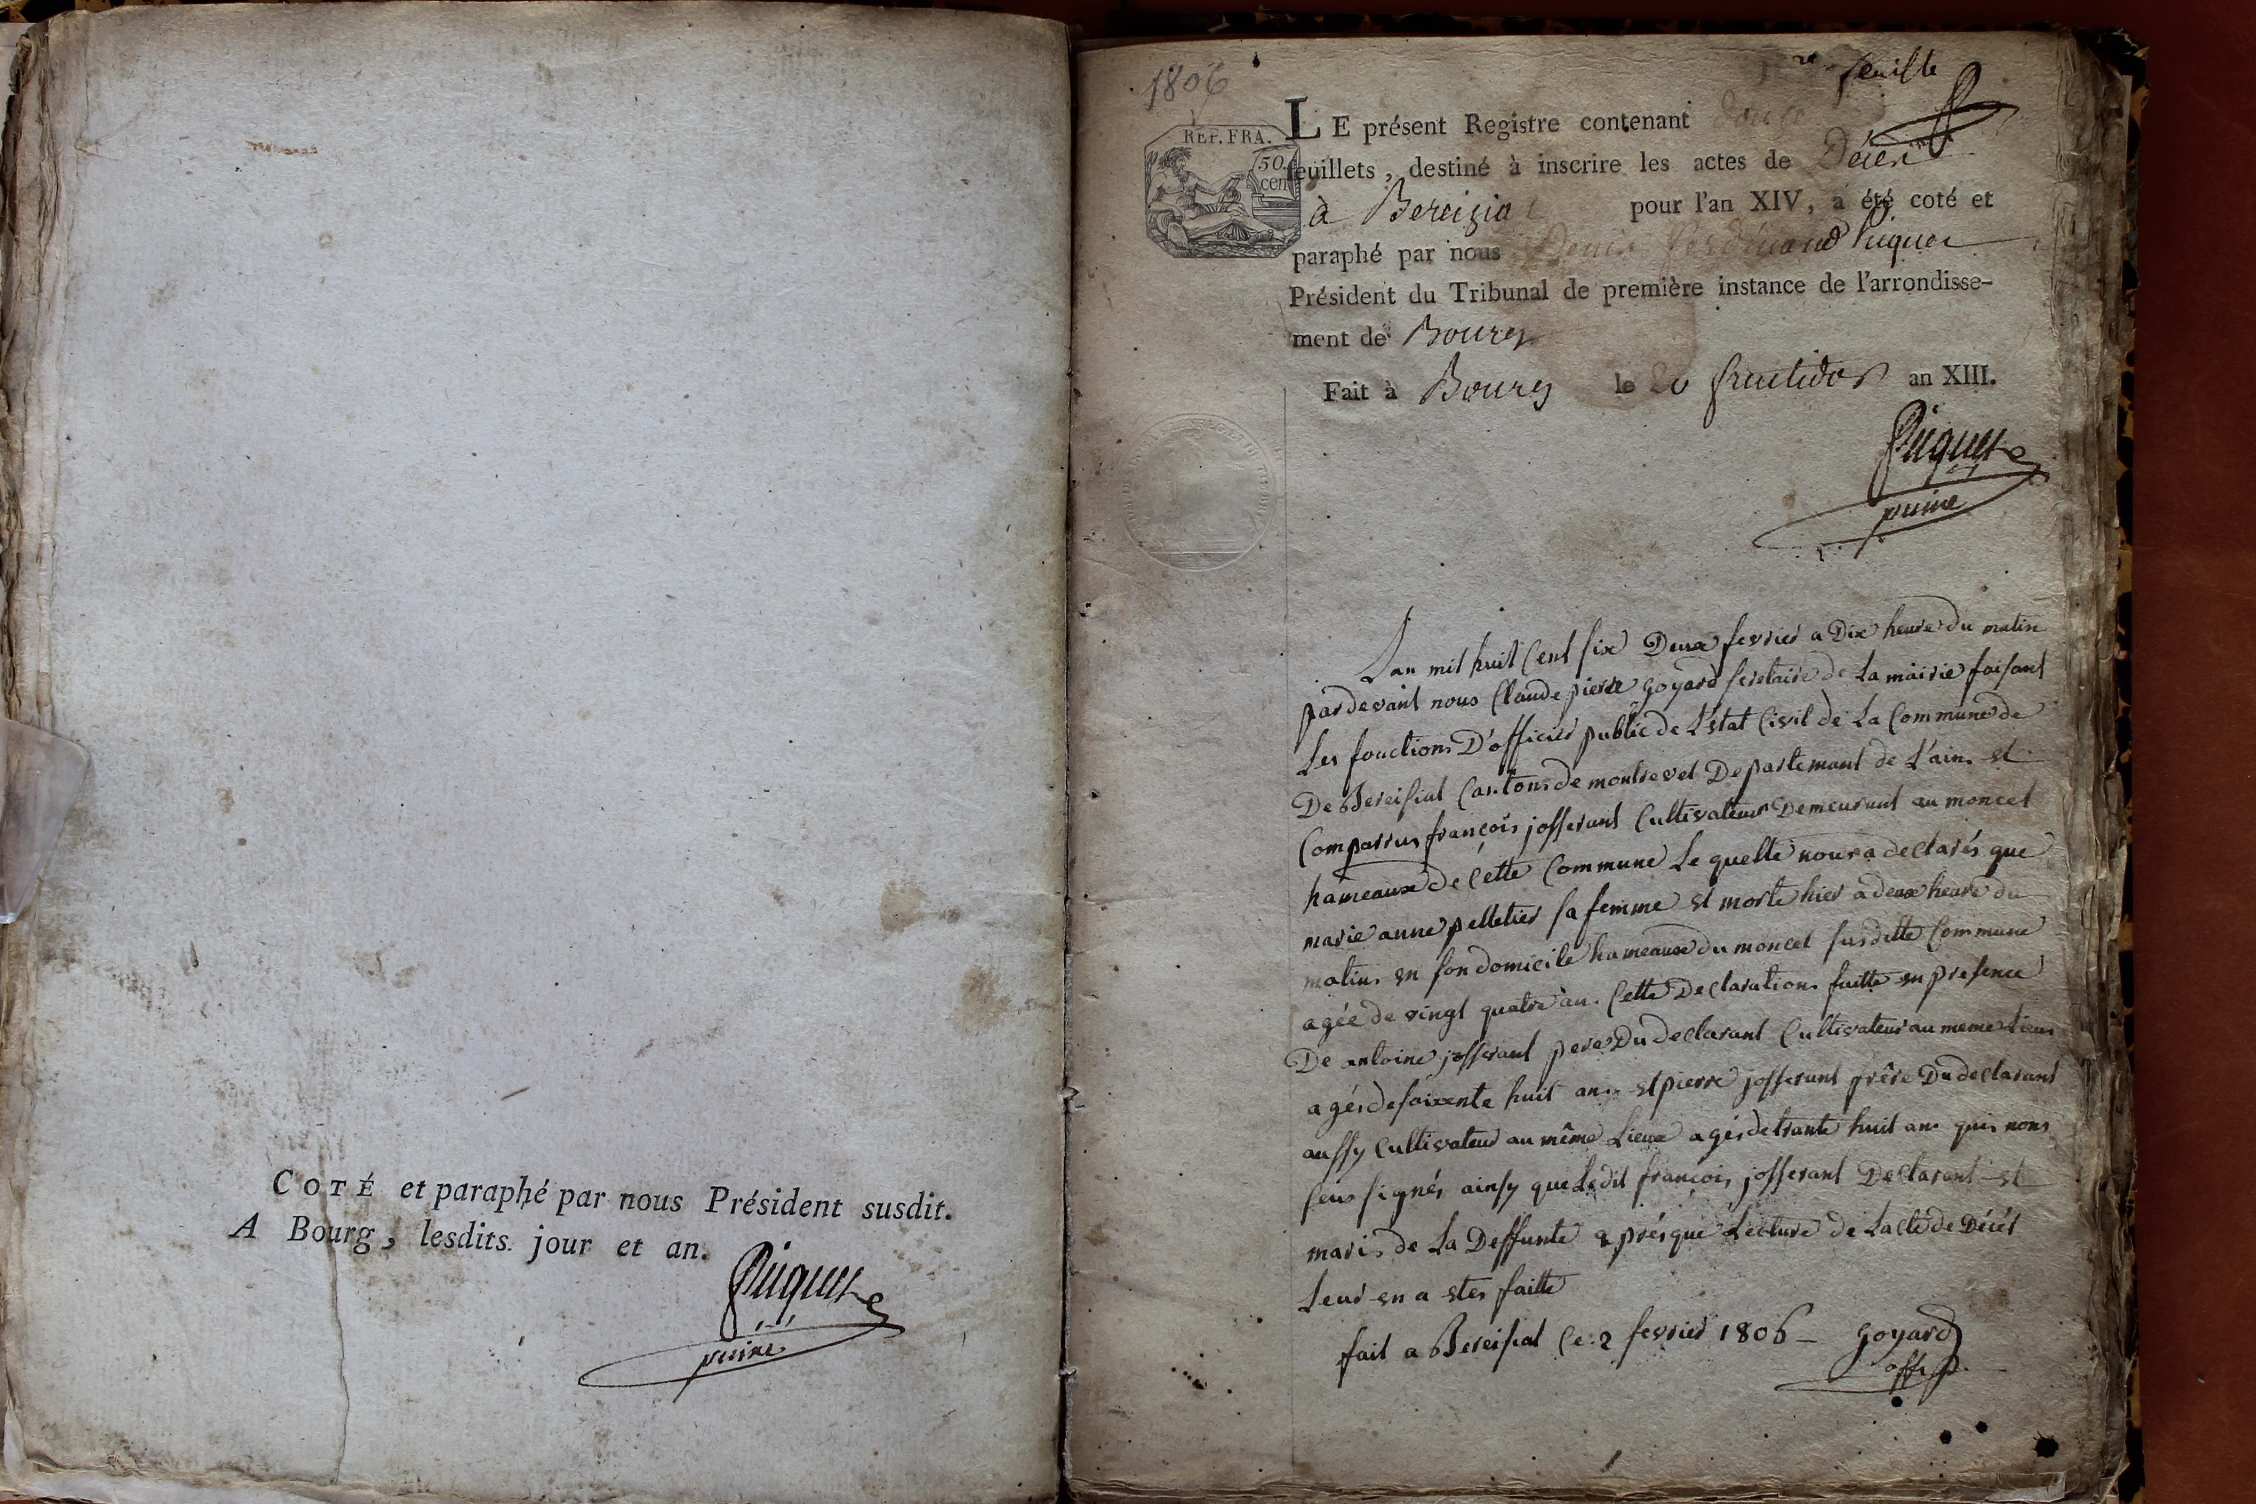 COTÉ et paraphé par nous Président susdit.
A Bourg, lesdits jour et an.
Piquet
puiné
1806
re feuille
REP. FRA.
50
cen
LE présent Registre contenant douze
feuillets, destiné à inscrire les actes de Décès
à Bereiziat pour l'an XIV, a été coté et
paraphé par nous Denis ferdinand Piquet
Président du Tribunal de première instance de l'arrondisse-
ment de Bourg
Fait à Bourg le 20 fructidor an XIII.
Piquet
puiné
Lan mil huit Cent six Deux fevrier a Dix heure du matin
pardevant nous Claude pierre goyard secretaire de La mairie faisant
Les fonctions D'officier public de L'etat Civil de La Commune de
De Bereisiat Cantons de montrevel Departemant de L'ain et
Comparrus françois josserant Cultivateur Demeurant au moncel
hameaux de Cette Commune Le quelle nous a declarés que
marie anne pelletier sa femme et morte hier a deux heure du
matin en son domicile hameaux du moncel susditte Commune
agée de vingt quatre an Cette Declaration faitte en presence
De antoine josserant pere Du declarant Cultivateur au meme Lieux
agés de soixente huit ans et pierre josserant frère Du declarant
aussy Cultivateur au même Lieux agés de trante huit ans qui nons
seus signés ainsy que Ledit françois josserant Declarant et
maris de La Deffunte aprés que Lecture de Lacte de Décés
Leur en a etes faitte
fait a Bereisiat Ce 2 fevrier 1806 goyard
off. p.